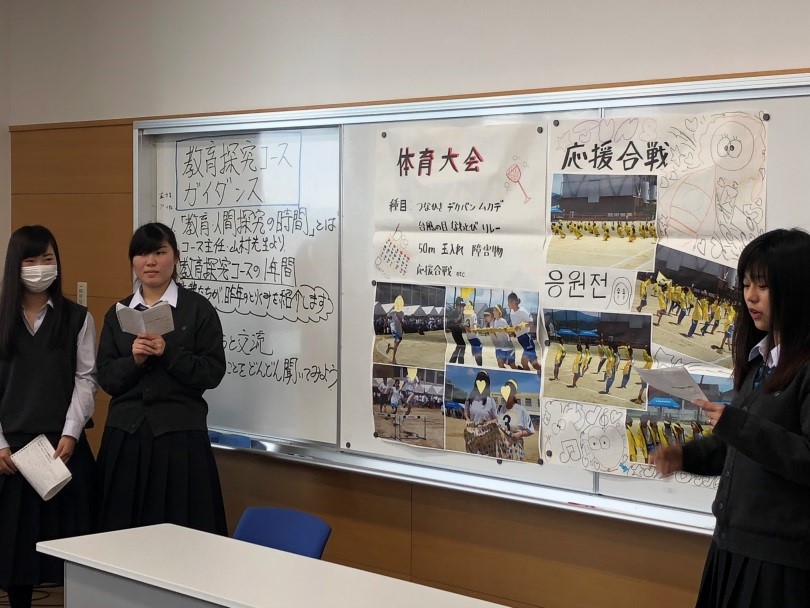 教育探究コース
ガイダンス
「教育・人間探究の時間」とは
コース主任・山村先生より
教育探究コースの1年間
昨年のとりくみを紹介します
と交流
ことをどんどん聞いてみよう
体育大会
種目 つなひき デカパン ムカデ
台風の目 なわとび リレー
50m 玉入れ 障害物
応援合戦 etc
応援合戦
응원전
3